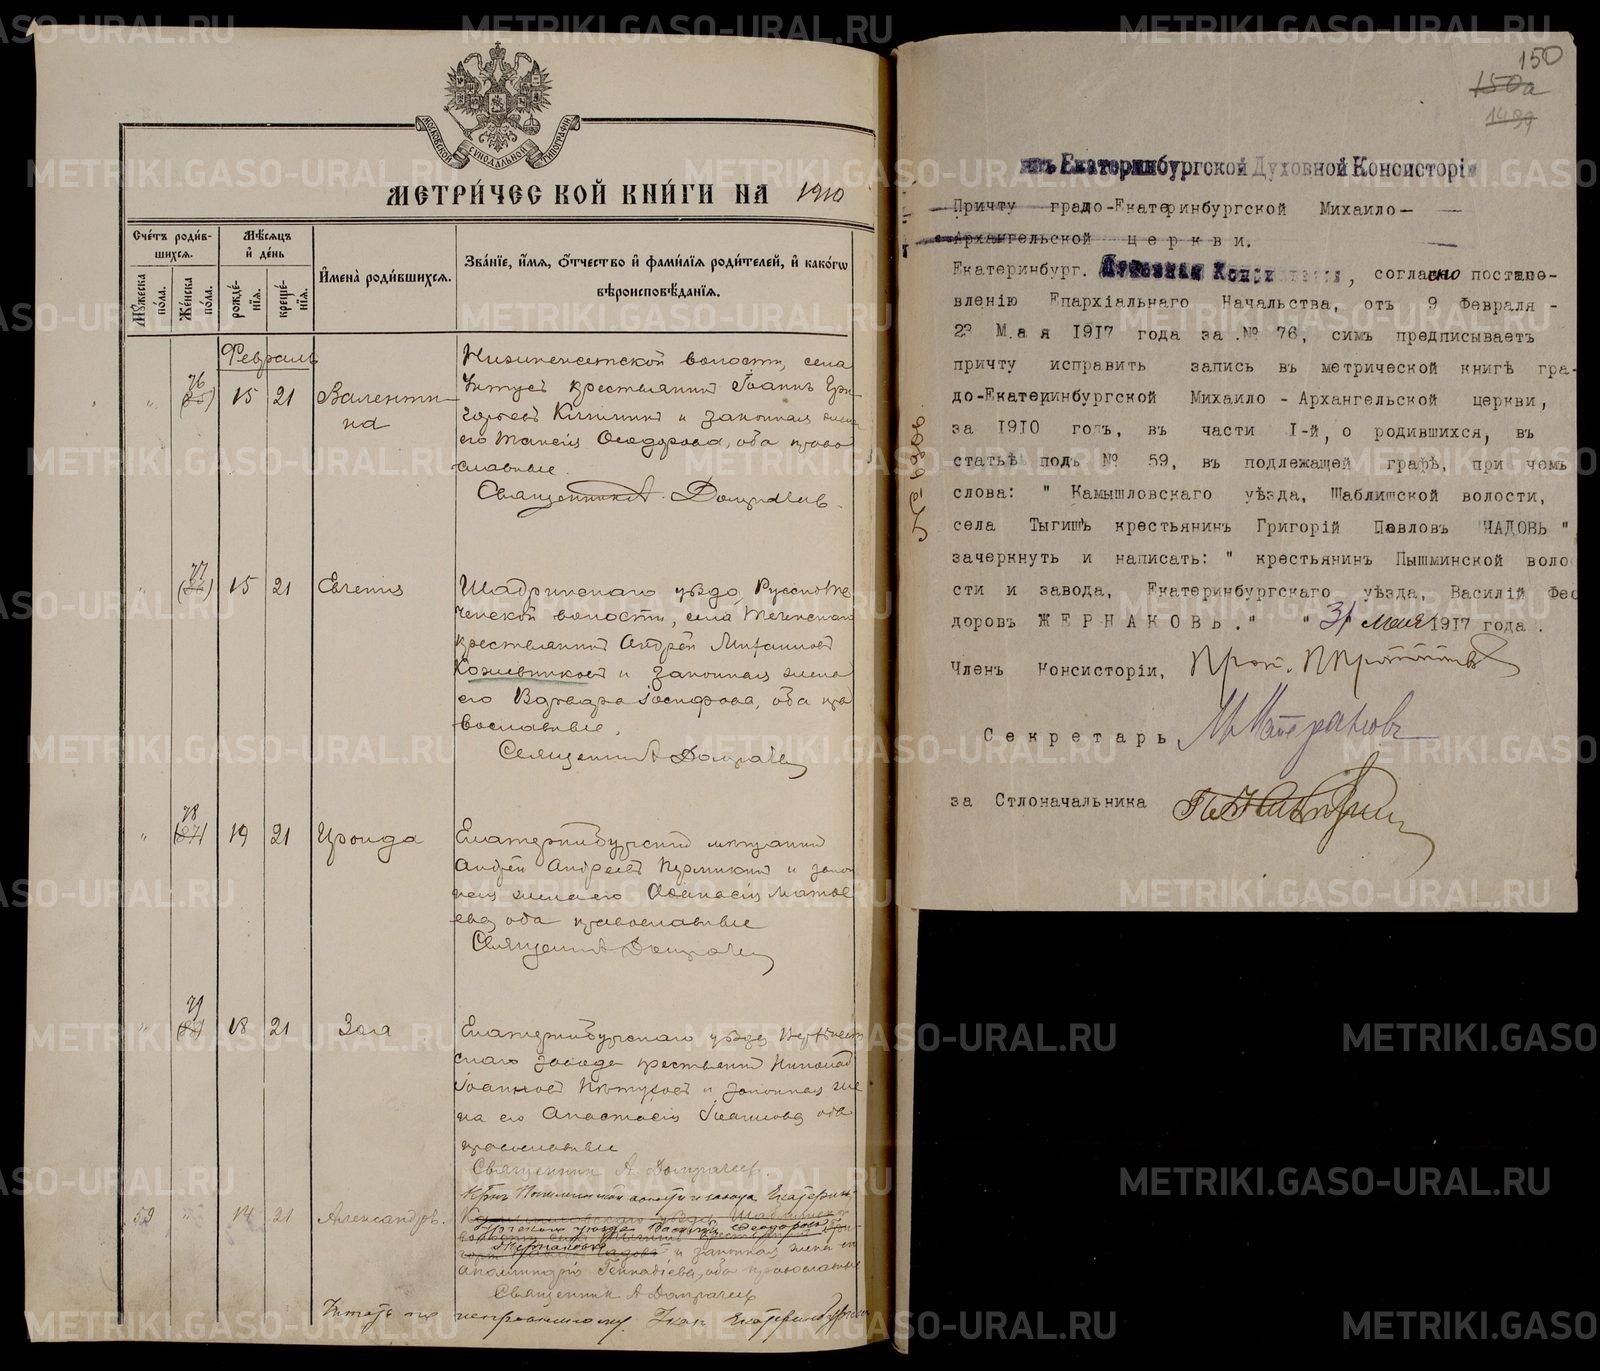 МОСКОВСКОЙ СѴНОДАЛЬНОЙ ТИПОГРАФІИ
МЕТРИ́ЧЕСКОЙ КНИ́ГИ НА 1910
Сче́тъ роди́в-
шихсѧ.
Мꙋ́жеска по́ла.
Же́нска по́ла.
Мѣ́сѧцъ
и҆ де́нь
рожде́-
нїѧ.
креще́-
нїѧ.
И҆мена̀ роди́вшихсѧ.
Зва́нїе, и҆́мѧ, ѻ҆́тчество и҆ фами́лїѧ роди́телей, и҆ како́гѡ
вѣроисповѣ́данїѧ.
Февраль
76
" 15 21 Валенти-
на
села
крестьянинъ Іоаннъ Гри-
горьевъ и законная жена
его Ѳеодорова, оба право-
славные.
Священникъ А. Домрачевъ.
77
" 15 21 Евгенія
Шадринскаго уѣзда, Русско-Те-
ченской волости, села Теченскаго
крестьянинъ Андрей Михаиловъ
Кожевниковъ и законная жена
его Варвара Іосифова, оба пра-
вославные.
Священникъ А Домрачевъ
78
" 19 21 Ироида
Екатеринбургскій мѣщанинъ
Андрей Андреевъ и закон-
ная жена его Аѳанасія Матвѣ-
ева, оба православные
Священникъ А Домрачевъ
79
" 18 21 Зоя
Екатеринбургскаго уѣзда
скаго завода крестьянинъ Николай
Іоанновъ и законная же-
на его Анастасія Іоаннова, оба
православные
Священникъ А Домрачевъ
Крнъ Пышминской волости и завода Екатерин-
59 " 14 21 Александръ.
Камышловскаго уѣзда Шаблишской
бургскаго уѣзда Василій Ѳеодоровъ
Жернаковъ
и законная жена его
Аполлинарія Геннадіева, оба православные
Священникъ А Домрачевъ
Читать по исправленному.
150
150а
149
изъ Екатеринбургской Духовной Консисторіи
Причту градо-Екатеринбургской Михаило-
Архангельской церкви.
Екатеринбург. Духовная Консисторія, согласно постано-
вленію Епархіальнаго Начальства, отъ 9 Февраля -
23 Мая 1917 года за № 76, симъ предписываетъ
причту исправить запись въ метрической книгѣ гра-
до-Екатеринбургской Михаило - Архангельской церкви,
за 1910 годъ, въ части I-й, о родившихся, въ
статьѣ подъ № 59, въ подлежащей графѣ, при чемъ
слова: " Камышловскаго уѣзда, Шаблишской волости,
села Тыгишъ крестьянинъ Григорій Павловъ ЧАДОВЪ "
зачеркнуть и написать: " крестьянинъ Пышминской воло
сти и завода, Екатеринбургскаго уѣзда, Василій Фео
доровъ ЖЕРНАКОВЪ." " 31 Мая 1917 года.
Членъ Консисторіи, Прот.
Секретарь
за Стлоначальника
METRIKI.GASO-URAL.RU